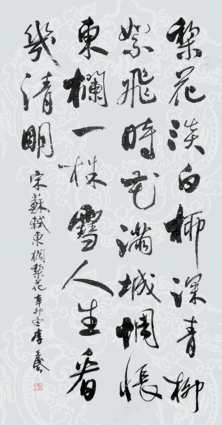 梨花淡白柳深青柳
絮飛時花滿城惆悵
東欄一株雪人生看
幾清明
宋蘇軾東欄梨花辛卯